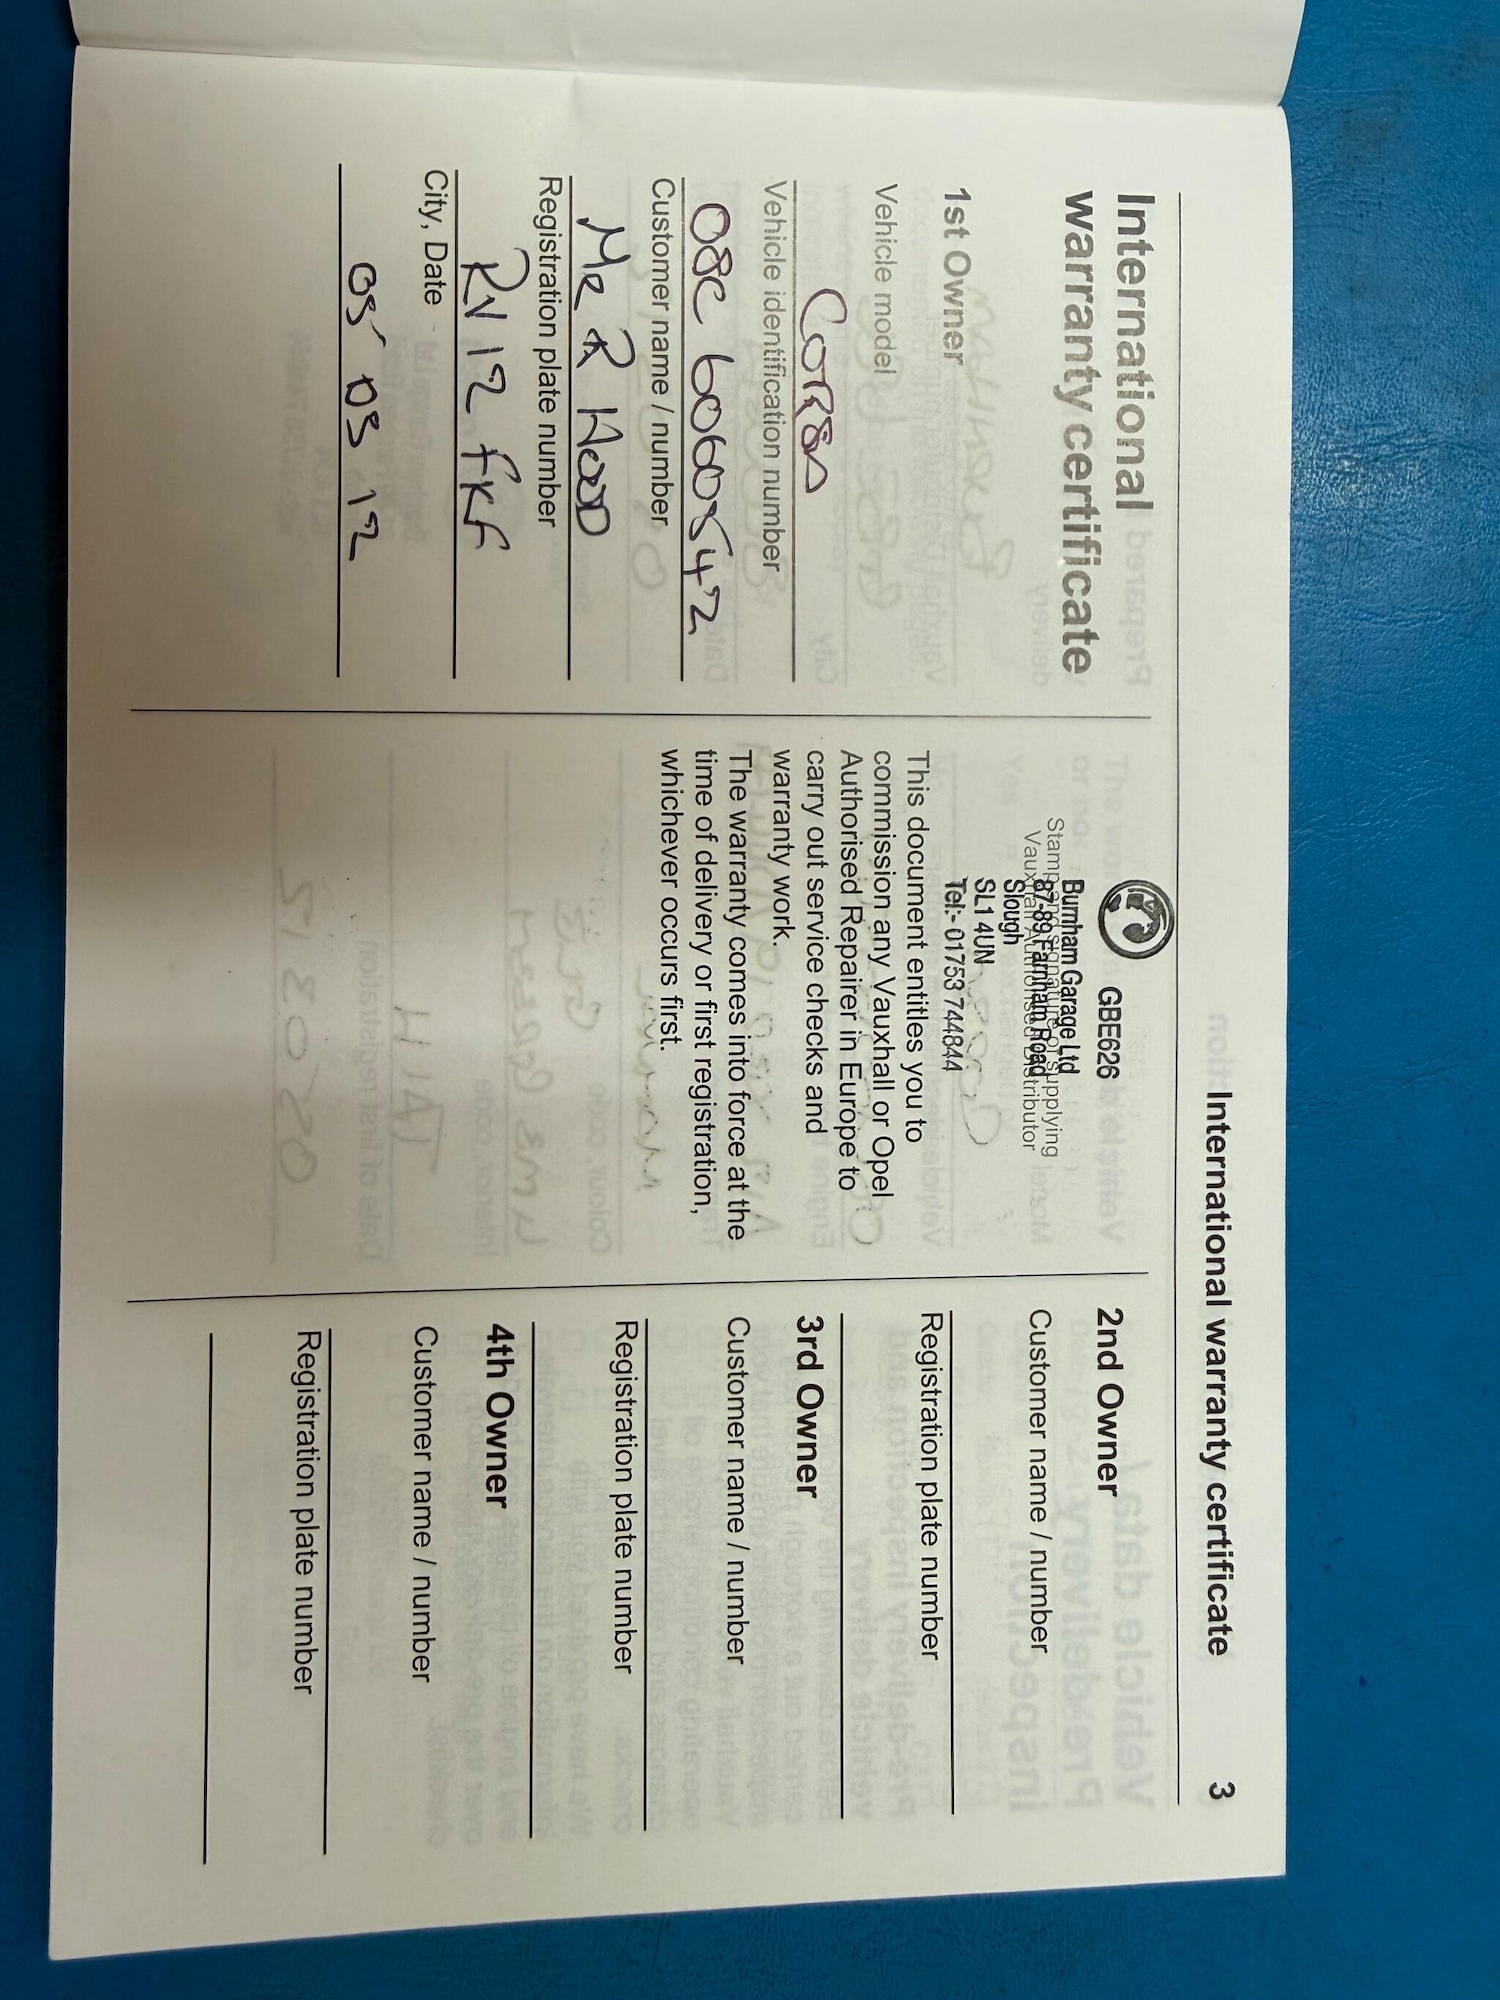 International warranty certificate 3
International
warranty certificate
1st Owner
Vehicle model
CORSA
Vehicle identification number
08C 6060542
Customer name / number
MR R HOOD
Registration plate number
RV 12 FKF
City, Date
05 03 12
GBE626
Burnham Garage Ltd
Stamp and signature of supplying
87-89 Farnham Road
Vauxhall Authorised Distributor
Slough
SL1 4UN
Tel:- 01753 744844
This document entitles you to
commission any Vauxhall or Opel
Authorised Repairer in Europe to
carry out service checks and
warranty work.
The warranty comes into force at the
time of delivery or first registration,
whichever occurs first.
2nd Owner
Customer name / number
Registration plate number
3rd Owner
Customer name / number
Registration plate number
4th Owner
Customer name / number
Registration plate number